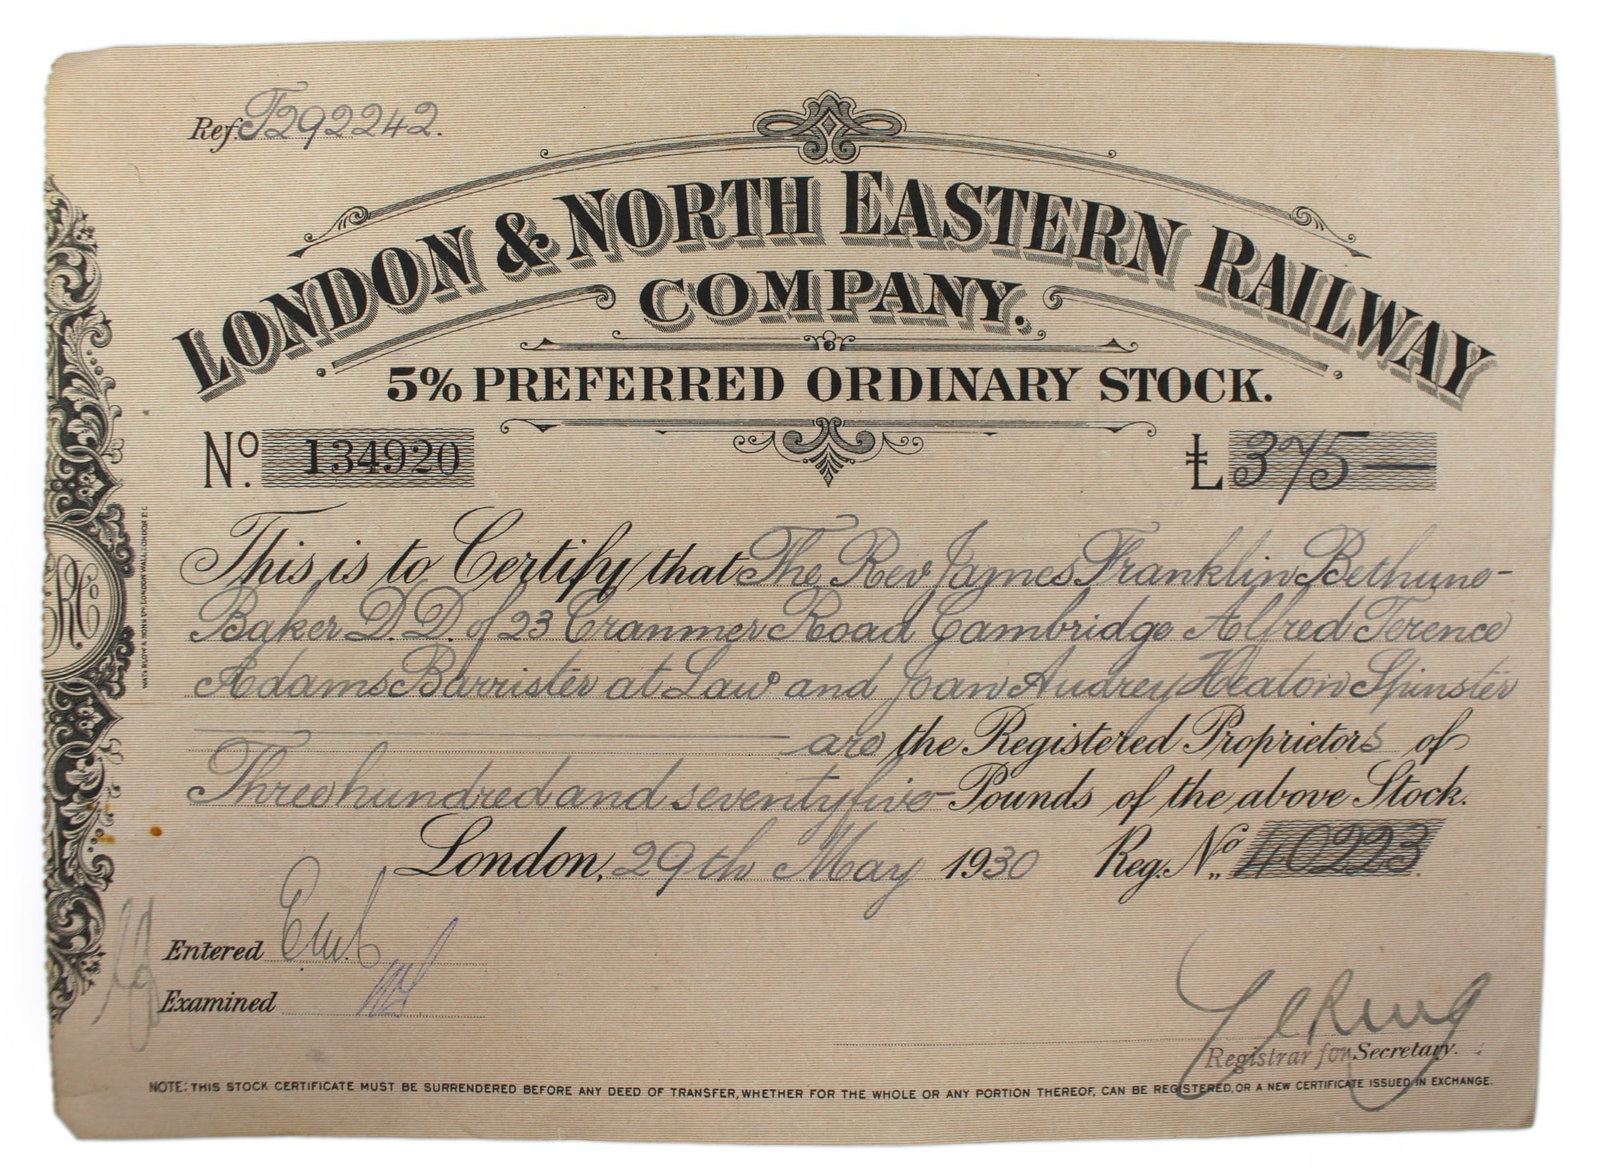 Ref. T292242.
LONDON & NORTH EASTERN RAILWAY
COMPANY.
5% PREFERRED ORDINARY STOCK.
No. 134920 £375 —
This is to Certify that The Rev James Franklin Bethune-
Baker D.D. of 23 Cranmer Road Cambridge Alfred Terence
Adams Barrister at Law and Joan Audrey Heaton Spinster
are the Registered Proprietors of
Three hundred and seventyfive Pounds of the above Stock.
London, 29th May 1930 Reg. No. 40223
Entered
Examined
Registrar for Secretary.
NOTE: THIS STOCK CERTIFICATE MUST BE SURRENDERED BEFORE ANY DEED OF TRANSFER, WHETHER FOR THE WHOLE OR ANY PORTION THEREOF, CAN BE REGISTERED, OR A NEW CERTIFICATE ISSUED IN EXCHANGE.